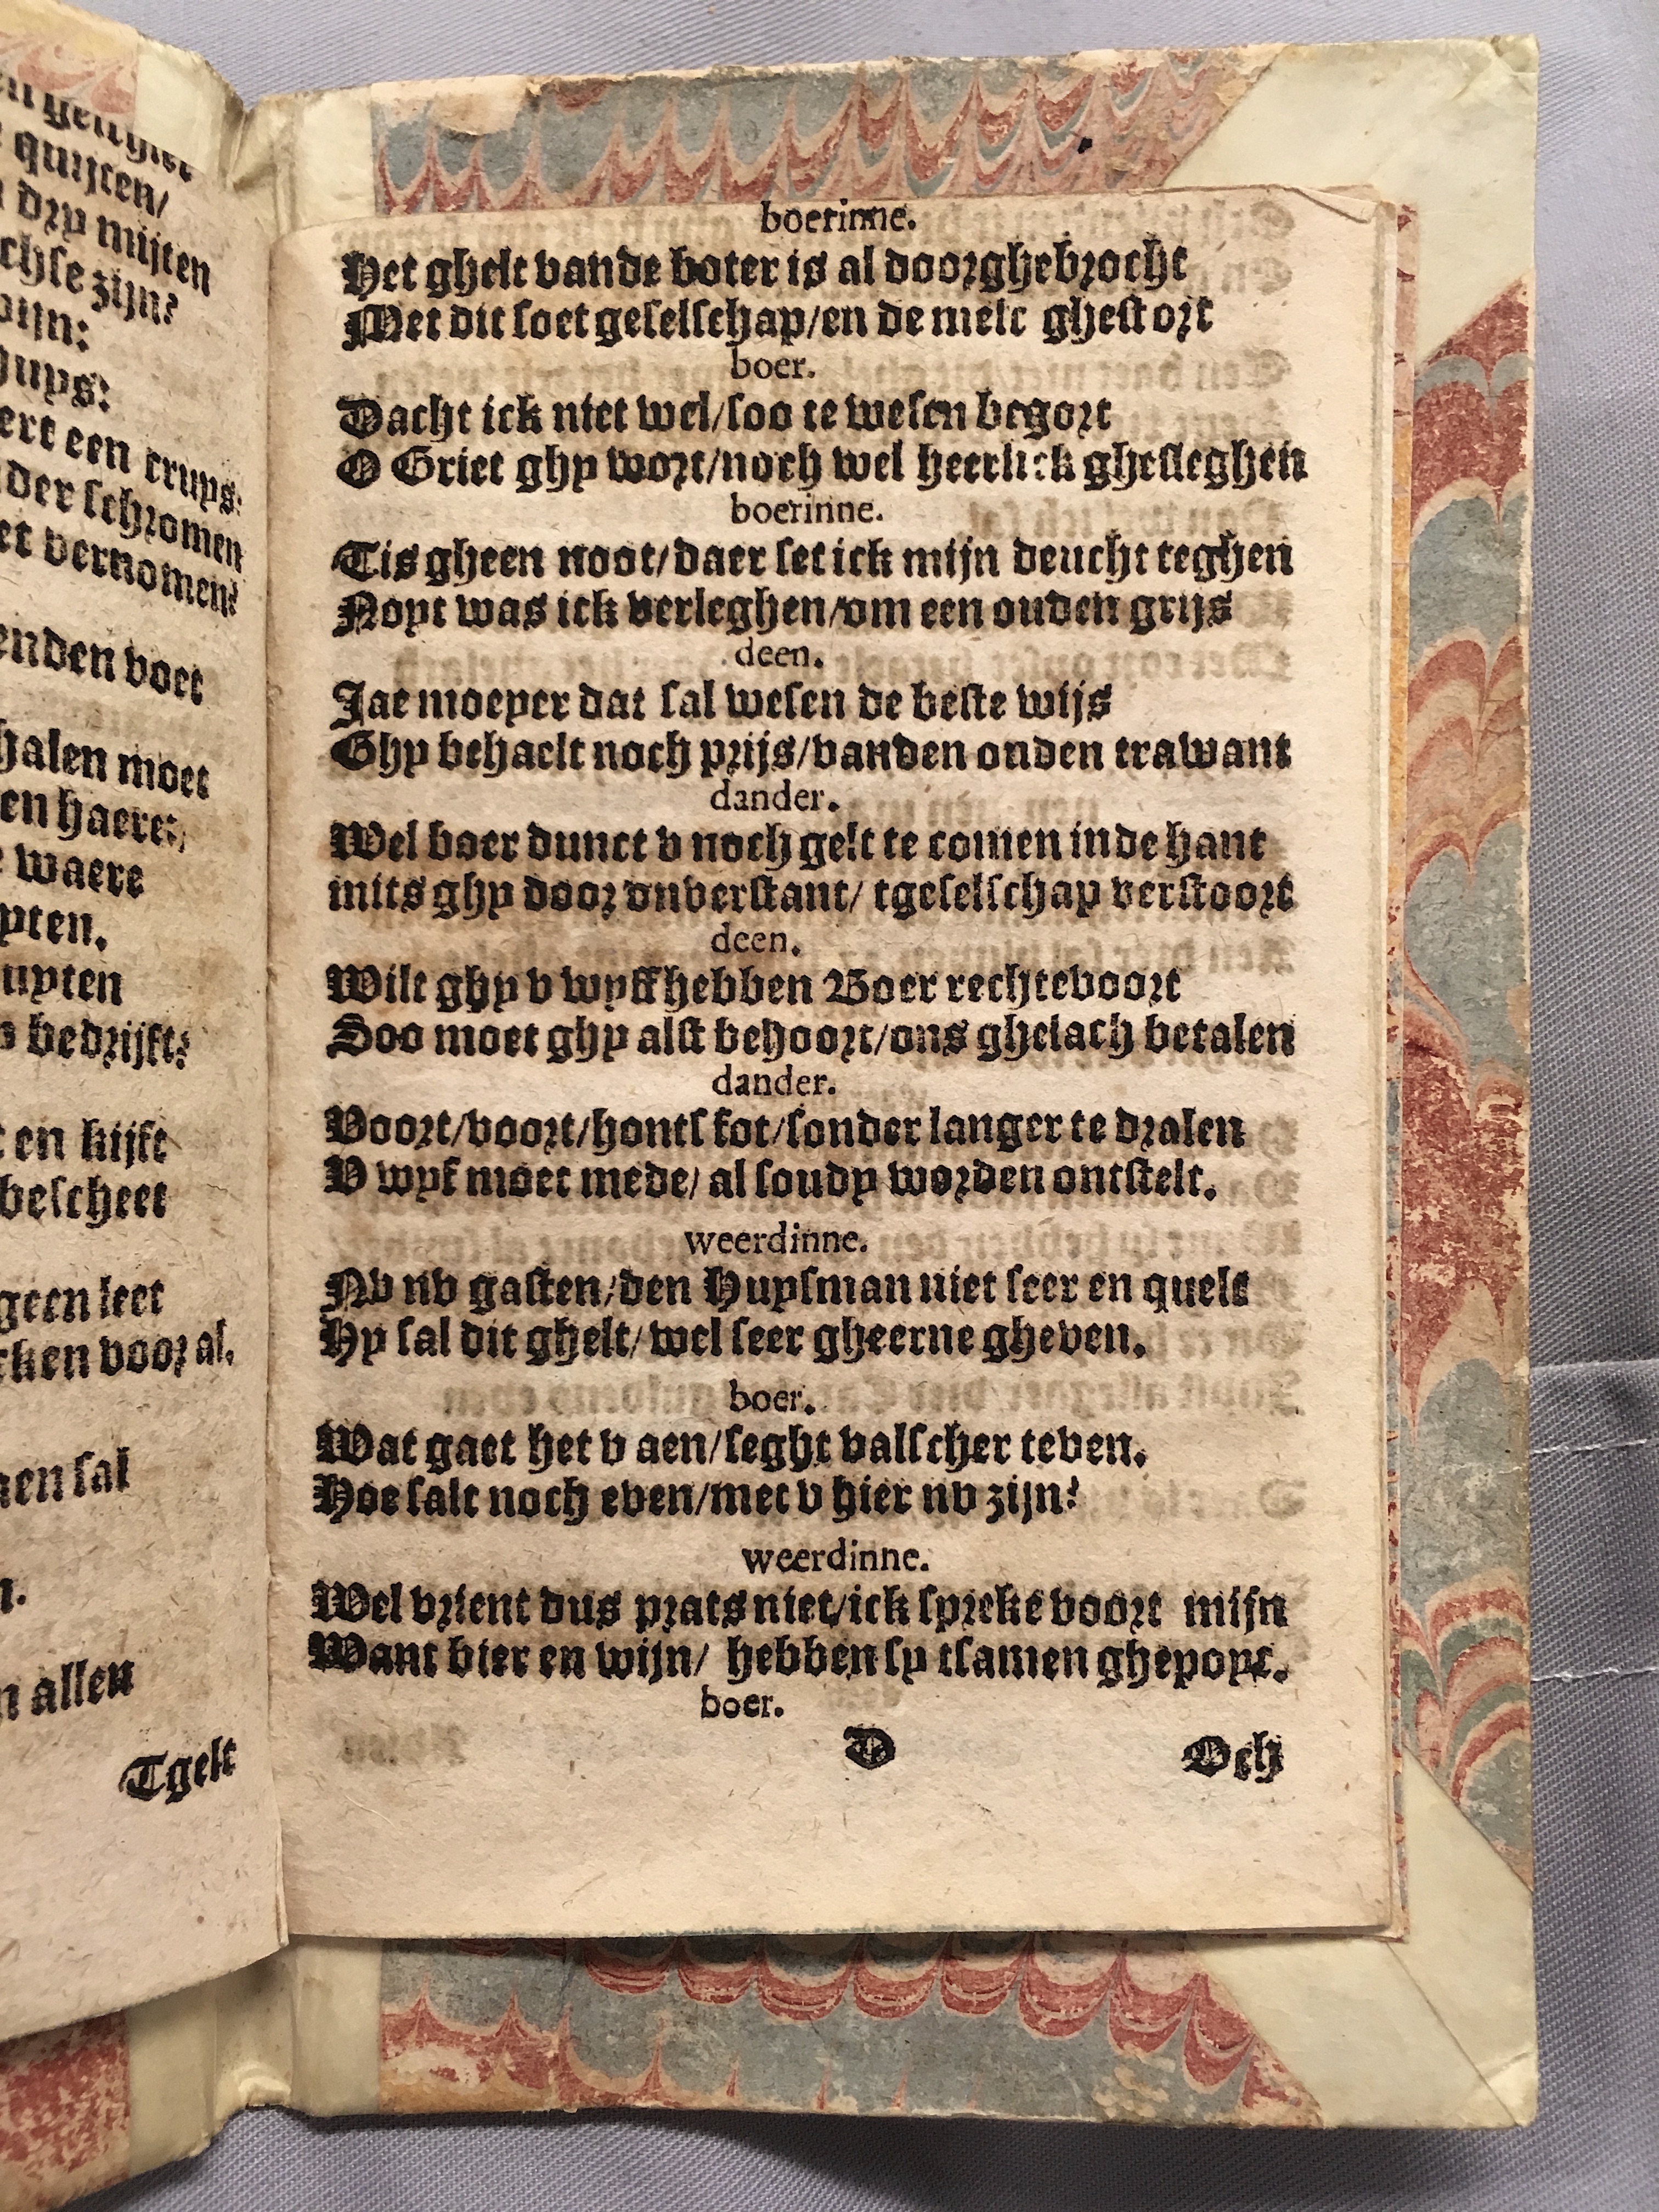 quijten/
dry mijten
chse zijn?
huys:
ert een cruys:
der schromen
et vernomen?
enden voet
halen moet
en haere:
waere
pten.
uyten
bedrijft?
en kijft
bescheet
geen leet
rken voor al.
en sal
n allen
Tgelt
boerinne.
Het ghelt vande boter is al doorghebrocht
Met dit soet geselschap/en de melc ghestort
boer.
Dacht ick niet wel/soo te wesen begort
O Griet ghy wort/noch wel heerlick ghesleghen
boerinne.
Tis gheen noot/daer set ick mijn deucht teghen
Noyt was ick verleghen/om een ouden grijs
deen.
Jae moeyer dat sal wesen de beste wijs
Ghy behaelt noch prijs/vanden ouden trawant
dander.
Wel boer dunct v noch gelt te comen inde hant
mits ghy door onverstant/ tgeselschap verstoort
deen.
Wilt ghy v wyff hebben Boer rechtevoort
Soo moet ghy alst behoort/ons ghelach betalen
dander.
Voort/voort/honts fot/sonder langer te dralen
V wyf moet mede/ al soudy worden ontstelt.
weerdinne.
Nv nv gasten/den Huysman niet seer en quelt
Hy sal dit ghelt/ wel seer gheerne gheven.
boer.
Wat gaet het v aen/seght valscher teven.
Hoe salt noch even/met v hier nv zijn?
weerdinne.
Wel vrient dus prats niet/ick spreke voort mijn
Want bier en wijn/ hebben sy tsamen ghepoyt.
boer.
D Och